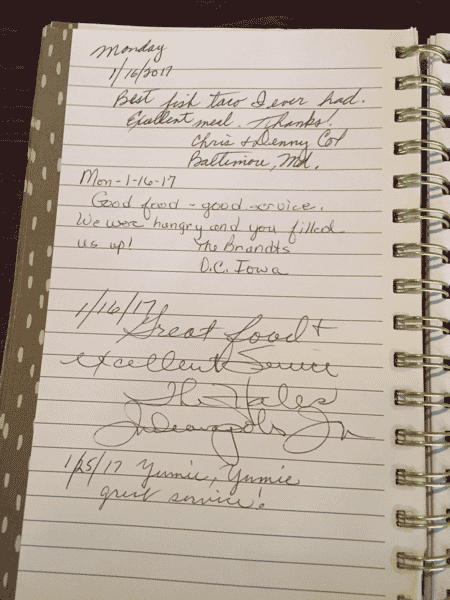 Monday
1/16/2017
Best fish taco I ever had.
Excellent meal. Thanks!
Chris & Denny
Baltimore, Md.
Mon-1-16-17
Good food - good service.
We were hungry and you filled
us up! The Brandts
D.C. Iowa
1/16/17 Great food &
excellent Service
The Hales
Indianapolis In
1/25/17 Yumie, Yumie
great service!